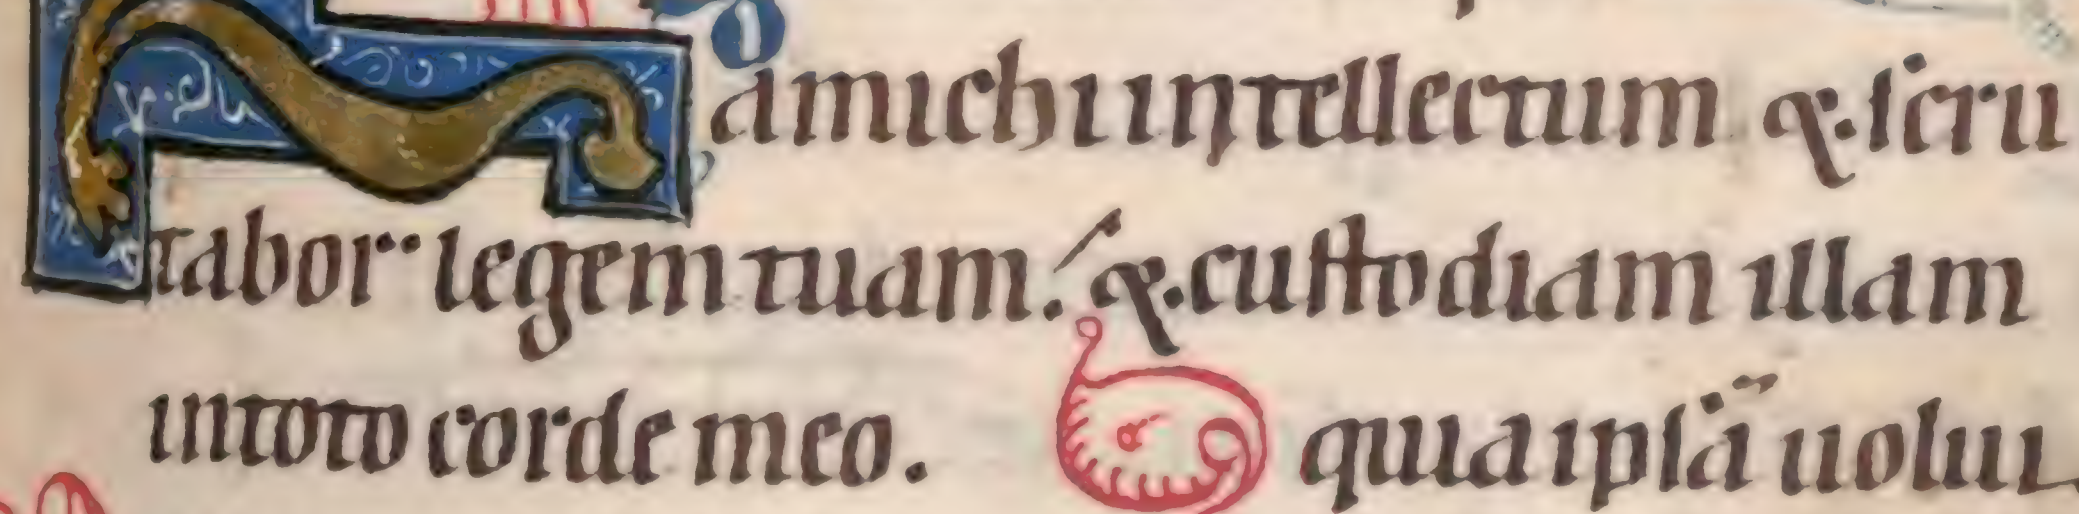 amichi intellectum &. scru
tabor legem tuam. &. custodiam illam
in toto corde meo. quia ipsā uolui